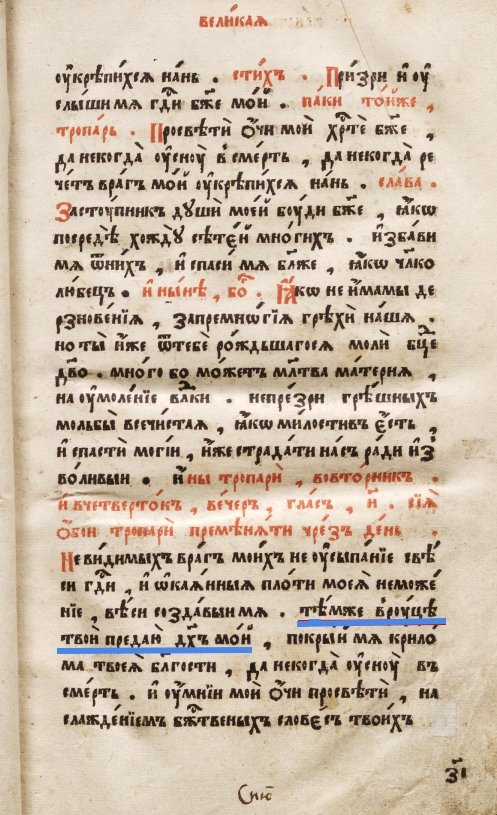 вели́каѧ
ѹ҆крѣпи́хсѧ на́нь . сті́хъ . При́зри и҆ ѹ҆
слы́ши мѧ гдⷭ҇и бж҃е мо́й . па́ки то́йже ,
тропа́рь . Просвѣтѝ ѻ҆́чи моѝ хрⷭ҇те бж҃е ,
да некогда̀ ѹ҆снѹ̀ в̾ сме́рть , да некогда̀ ре
че́тъ вра́гъ мо́й ѹ҆крѣпи́хсѧ на́нь . сла́ва .
Засто́ѹпникъ дѹшѝ мое́й бо́ѹди бж҃е , ꙗ҆́кѡ
посредѣ̀ хождѹ̀ сѣте́й мно́гихъ . и҆зба́ви
мѧ ѿ ни́хъ , и҆ спаси́ мѧ бл҃же , ꙗ҆́кѡ чл҃ко
лю́бецъ . и҆ ны́нѣ , бо́ⷢ҇ . Ꙗ҆́кѡ не и҆́мамы де
рзнове́нїѧ , за премнѡ́гїѧ грѣхѝ на́шѧ .
но ты̀ и҆́же ѿ тебѐ ро́ждьшагосѧ молѝ бц҃е
дв҃о . мно́го бо мо́жетъ мл҃тва ма́тернѧ ,
на ѹ҆моле́нїе влⷣки . не пре́зри грѣ́шныхъ
мольбы̀ всечи́стаѧ , ꙗ҆́кѡ ми́лостивъ є҆́сть ,
и҆ спастѝ могі́и , и҆́же страда́ти на́съ ра́ди и҆з̾
во́ливыи . и҆ны̀ тропарѝ , во вто́рникъ .
и҆ в четверто́къ , ве́черъ , гла́съ , и҃ . сїѧ̀
ѻ҆́бои тропарѝ премѣнѧ́ти чре́зъ де́нь .
Неви́димыхъ вра́гъ мои́хъ не ѹ҆сыпа́нїе свѣ́
си гдⷭ҇и , и҆ ѡ҆каѧ́нныѧ пло́ти моеѧ̀ неможе́
нїе , вѣ́си созда́выи мѧ . тѣ́мже в̾ рѹ́цѣ
твоѝ предаю̀ дх҃ъ мо́й , покры́й мѧ крило́
ма твоеѧ̀ бл҃гости , да некогда̀ ѹ҆снѹ̀ въ
сме́рть . и҆ ѹ҆́мнїи моѝ ѻ҆́чи просвѣтѝ , на
слажде́нїемъ бжⷭ҇твеныхъ слове́съ твои́хъ
з҃і